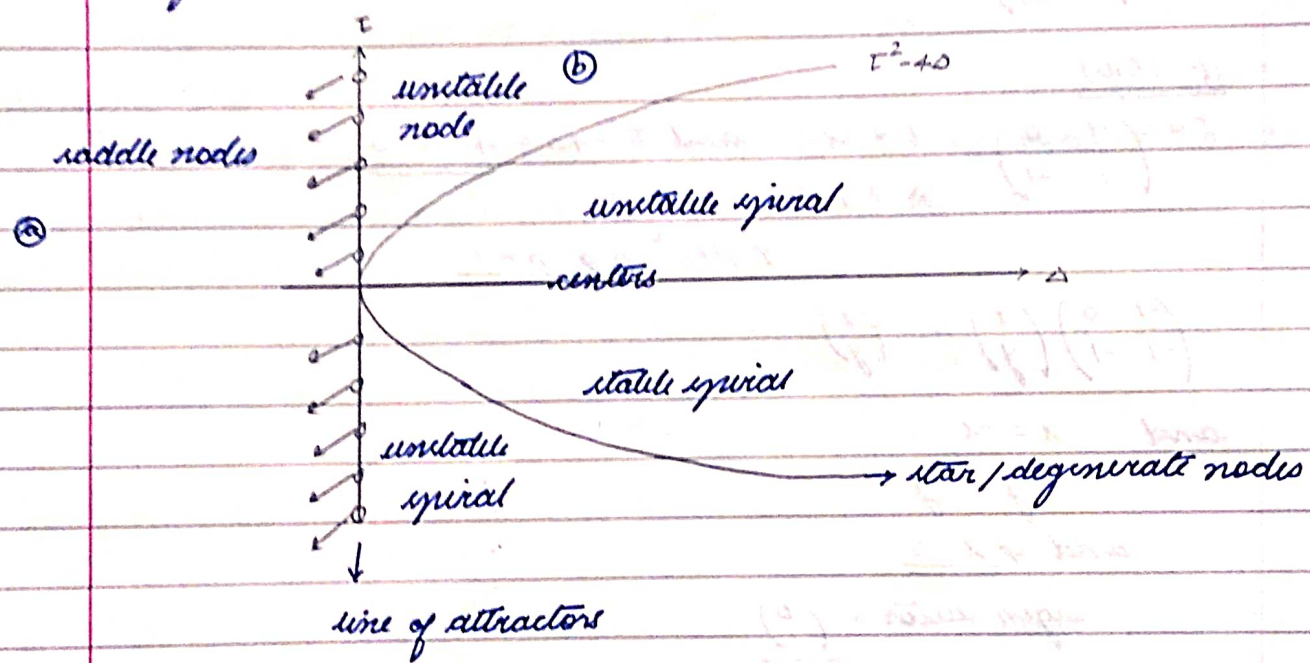 τ
ⓑ
τ²-4Δ
unstable
node
saddle nodes
unstable spiral
ⓐ
centers
Δ
stable spiral
unstable
spiral
star/degenerate nodes
line of attractors